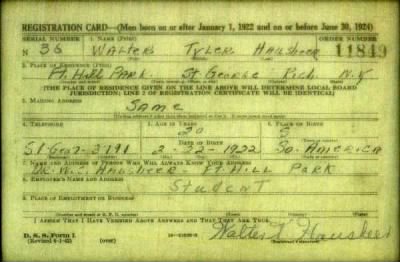 REGISTRATION CARD—(Men born on or after January 1, 1922 and on or before June 30, 1924)
SERIAL NUMBER 1. NAME (Print) ORDER NUMBER
N 36 WALTER TYLER HAUSHEER 11849
2. PLACE OF RESIDENCE (Print)
Ft. Hill PARK. St GEORGE Rich. N.Y
(THE PLACE OF RESIDENCE GIVEN ON THE LINE ABOVE WILL DETERMINE LOCAL BOARD
JURISDICTION; LINE 2 OF REGISTRATION CERTIFICATE WILL BE IDENTICAL)
3. MAILING ADDRESS
SAME
4. TELEPHONE 5. AGE IN YEARS 6. PLACE OF BIRTH
20
DATE OF BIRTH
2-22-1922 SO. AMERICA
7. NAME AND ADDRESS OF PERSON WHO WILL ALWAYS KNOW YOUR ADDRESS
HAUSHEER - FT. HILL PARK
8. EMPLOYER'S NAME AND ADDRESS
Student
9. PLACE OF EMPLOYMENT OR BUSINESS
I AFFIRM THAT I HAVE VERIFIED ABOVE ANSWERS AND THAT THEY ARE TRUE.
D. S. S. Form 1
(over)
Walter T Hausheer